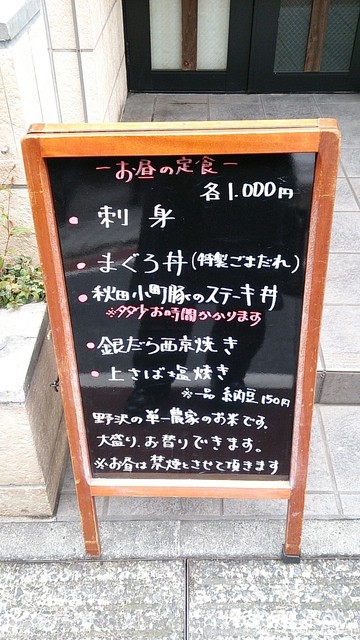 －お昼の定食－
各1.000円
・刺身
・まぐろ丼(特製ごまだれ)
・秋田小町豚のステーキ丼
※多少お時間かかります
・銀だら西京焼き
・上さば塩焼き
※一品 納豆150円
野沢の単一農家のお米です。
大盛り、お替りできます。
※お昼は禁煙とさせて頂きます